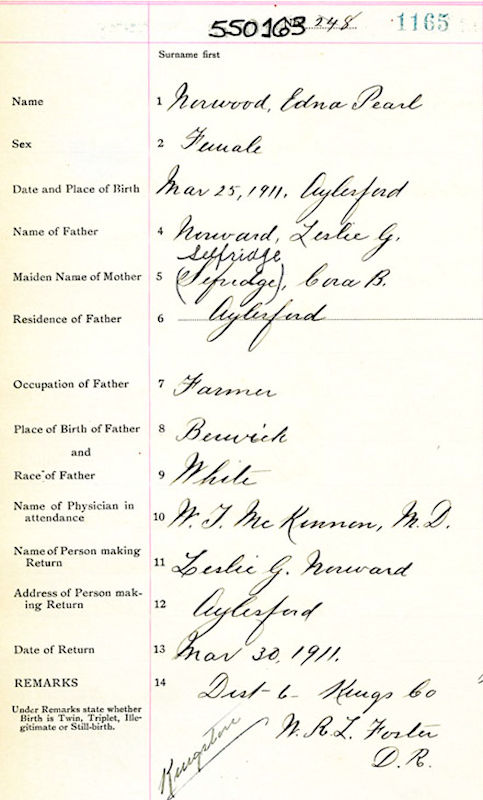 550163 No 248 1165
Surname first
Name 1 Norwood, Edna Pearl
Sex 2 Female
Date and Place of Birth 3 Mar 25, 1911. Aylesford
Name of Father 4 Norward, Leslie G.
Selfridge
Maiden Name of Mother 5 (Sefridge), Cora B.
Residence of Father 6 Aylesford
Occupation of Father 7 Farmer
Place of Birth of Father 8 Berwick
and
Race of Father 9 White
Name of Physician in
attendance 10 W. T. McKinnon, M.D.
Name of Person making
Return 11 Leslie G. Norward
Address of Person mak-
ing Return 12 Aylesford
Date of Return 13 Mar 30, 1911.
REMARKS 14 Dist 6 - Kings Co
Under Remarks state whether
Birth is Twin, Triplet, Ille-
gitimate or Still-birth.
W. R. L. Foster
D.R.
Kingston